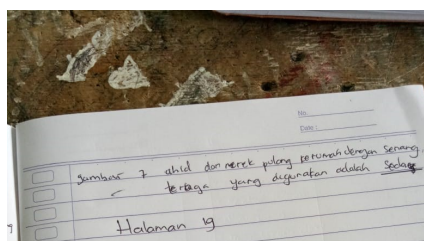 No :
Date :
gambar 7 ahid dan merek pulang kerumah dengan senang.
tenaga yang digunakan adalah sedang
Halaman 19